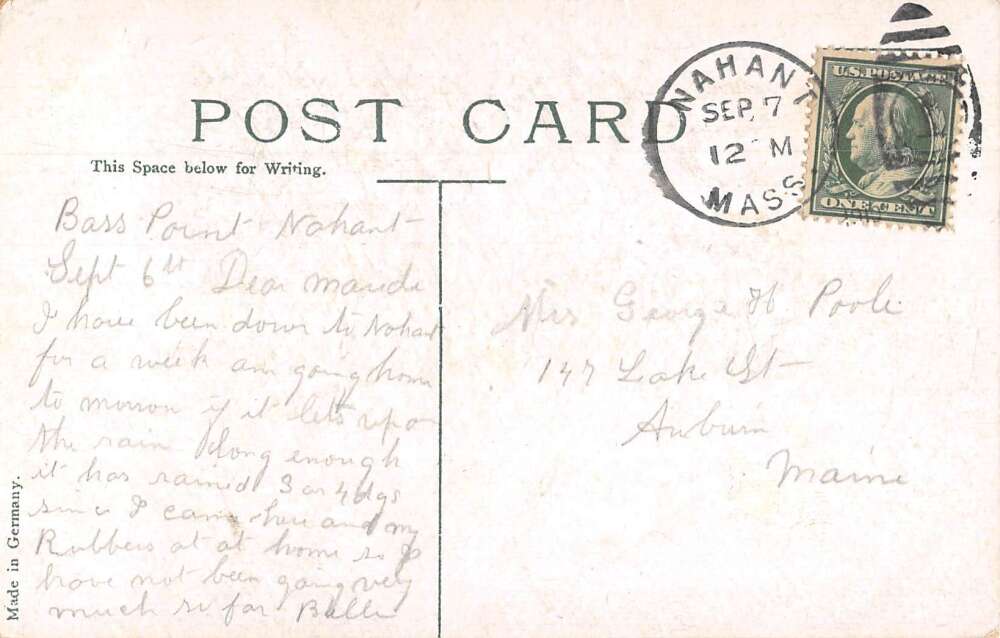 POST CARD
This Space below for Writing.
NAHANT
SEP 7
12 M
MASS
U.S. POSTAGE
ONE CENT
Bass Point Nahant
Sept 6th Dear Maude
I have been down to Nahant
for a week am going home
to morrow if it lets up
the rain long enough
it has rained 3 or 4 dys
since I came here and my
Rubbers at at home so I
have not been going very
much so far Belle
Mrs George H Poole
147 Lake St
Auburn
Maine
Made in Germany.